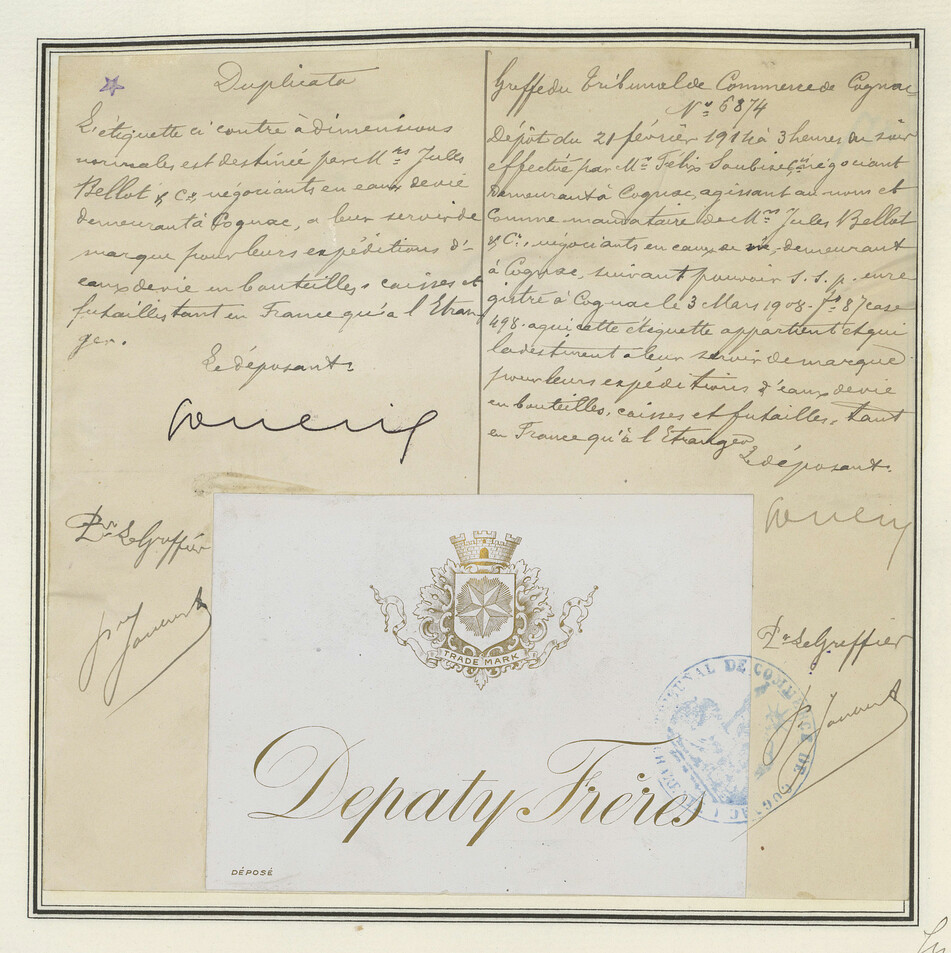 Duplicata
L'étiquette ci contre à dimensions
normales est destinée par M.rs Jules
Bellot & Cie, négociants en eaux de vie
demeurant à Cognac, a leur servir de
marque pour leurs expéditions d'
eaux de vie en bouteilles, caisses et
futailles tant en France qu'à l'Etran
ger.
Le déposant.
Pr Le Greffier
Greffe du Tribunal de Commerce de Cognac
No 6874
Dépôt du 21 février 1914 à 3 heures du soir
effectué par Mr Félix négociant
demeurant à Cognac, agissant au nom et
comme mandataire de M.rs Jules Bellot
& Cie, négociants en eaux de vie, demeurant
à Cognac, suivant pouvoir s.s.p. enre
gistré à Cognac le 3 Mars 1908. fo 87 case
498. a qui cette étiquette appartient et qui
la destinent à leur servir de marque
pour leurs expéditions d'eaux de vie
en bouteilles, caisses et futailles, tant
en France qu'à l'Etranger
Le déposant.
Pr Le Greffier
TRADE MARK
Depaty Frères
DÉPOSÉ
TRIBUNAL DE COMMERCE DE COGNAC